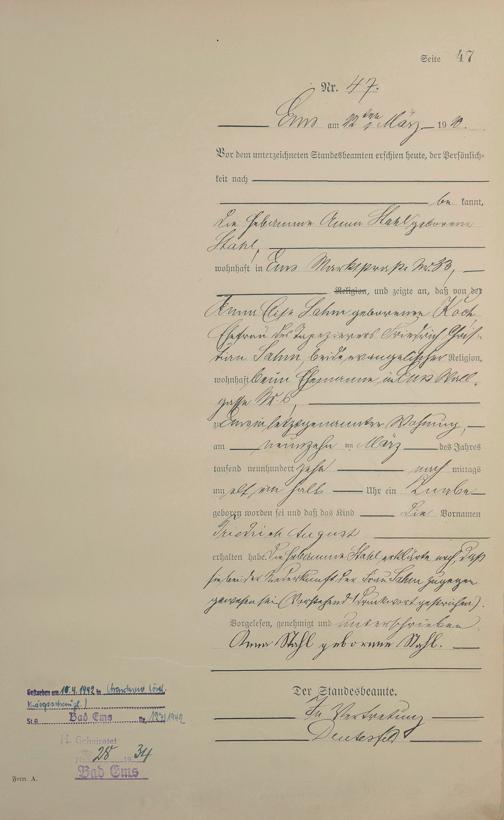 Seite 47
Nr. 47.
Ems am März 1910.
Vor dem unterzeichneten Standesbeamten erschien heute, der Persönlich-
keit nach
be kannt,
die Hebamme Anna Stahl geborene
Stahl,
wohnhaft in Ems Marktstraße No 33,
Religion, und zeigte an, daß von der
Anna Elise Sahm geborenen Koch
Ehefrau des Tapezierers Friedrich Chris-
tian Sahm, beide evangelischer Religion,
wohnhaft beim Ehemanne, in Ems Wall-
gasse No 6,
zu Ems in letztgenannter Wohnung,
am neunzehn ten März des Jahres
tausend neunhundert zehn nach mittags
um elf ein halb Uhr ein Knabe
geboren worden sei und daß das Kind die Vornamen
Friedrich August
erhalten habe. Die Hebamme Stahl erklärte noch, daß
sie bei der Niederkunft der Frau Sahm zugegen
gewesen sei. (Vorstehend 1 Druckwort gestrichen).
Vorgelesen, genehmigt und unterschrieben
Anna Stahl geborene Stahl.
Der Standesbeamte.
In Vertretung
Gestorben am 10.4.1942 in
St.A. Bad Ems Nr.
Geheiratet
28 34
Bad Ems
Form A.